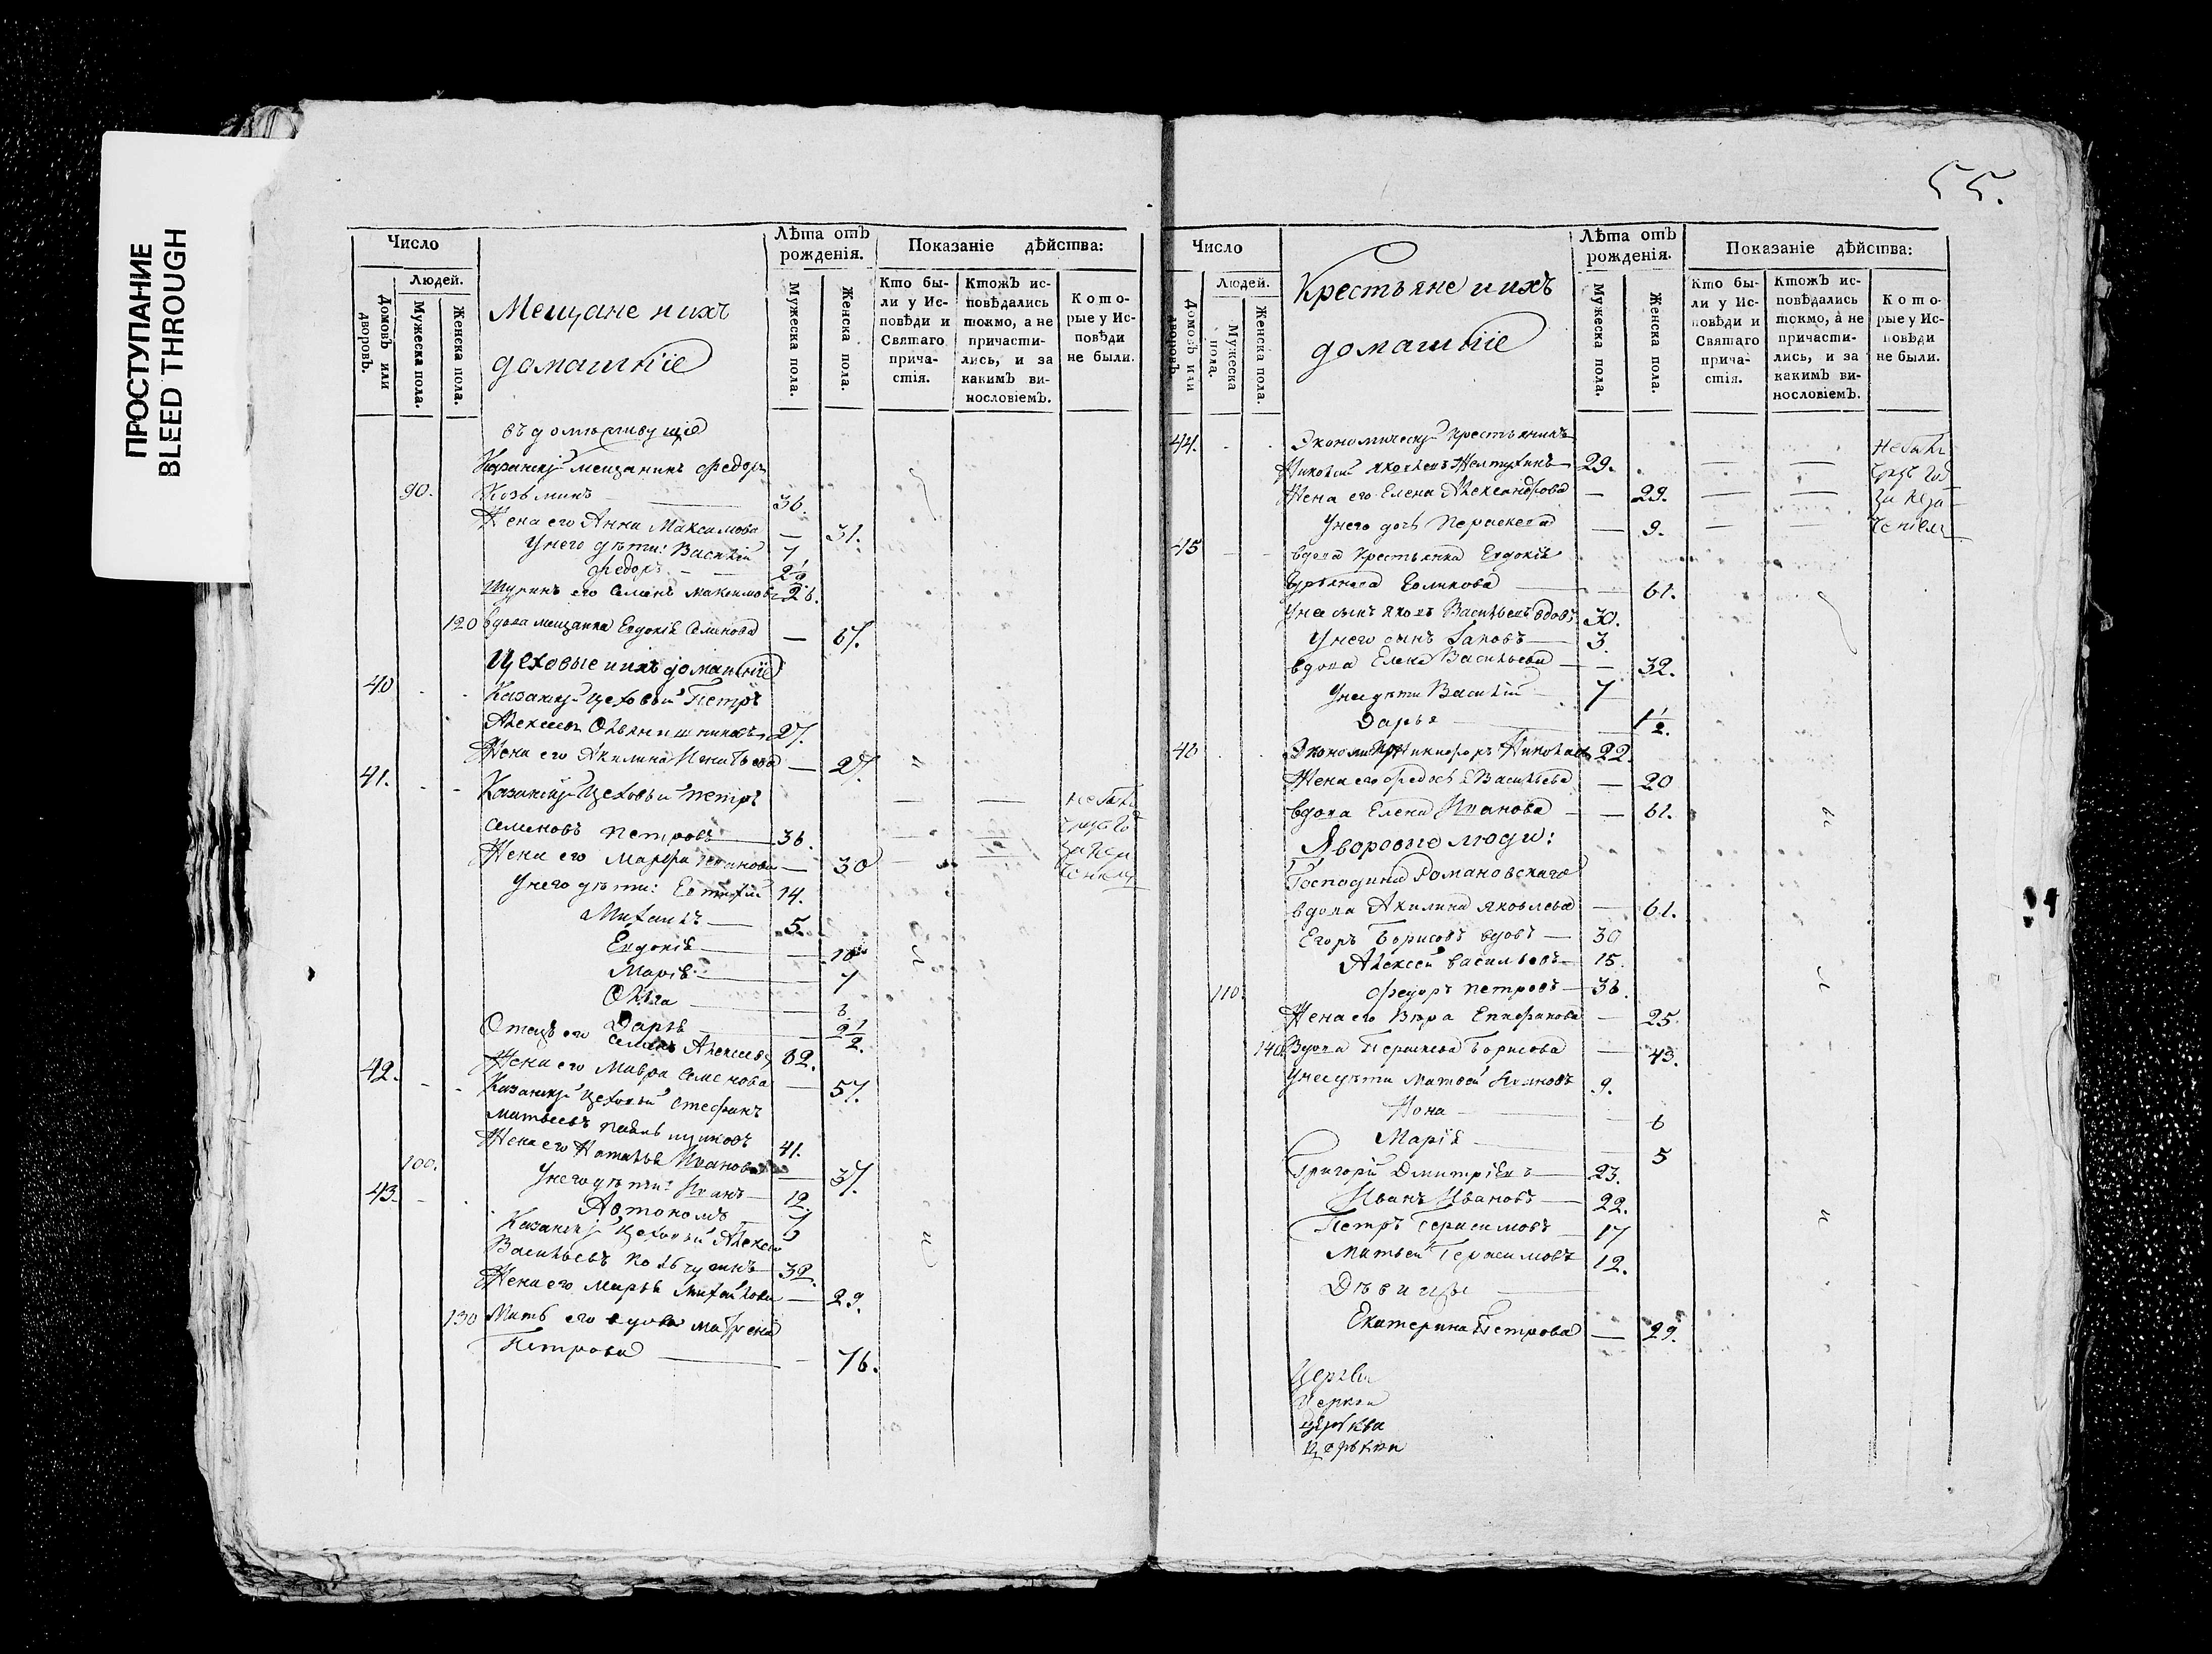 ПРОСТУПАНИЕ
BLEED THROUGH
55.
Число
Людей.
Домовъ или дворовъ.
Мужеска пола.
Женска пола.
Мещане и ихъ
домашніе
Лѣта отъ рожденія.
Мужеска пола.
Женска пола.
Показаніе дѣйства:
Кто были у Исповѣди и Святаго причастія.
Ктожъ исповѣдались токмо, а не причастились, и за какимъ винословіемъ.
Которые у Исповѣди не были.
въ доме живущіе
Казанскій мещанинъ Федоръ
90. Козьминъ 36.
Жена его Анна Максимова — 31.
У него дѣти: Василій 7
Федоръ 2 1/2
Шуринъ его Семенъ Максимовъ 26.
120 вдова мещанка Евдокія Семенова — 67.
Цеховые и ихъ домашніе
40 Казанскій цеховый Петръ
Алексеевъ 27.
Жена его Акилина Игнатьева — 27.
41. Казанскій Цеховый Петръ
Семеновъ Петровъ 36.
Жена его Марфа Иванова — 30
У него дѣти: Евтихій 14.
Михаилъ 5.
Евдокія — 10
Марія — 7
Ольга — 6.
Дарья — 2 1/2.
Отецъ его Семенъ Алексеевъ 82.
Жена его Мавра Семенова — 57.
42. Казанскій цеховый Стефанъ
Матвеевъ 41.
Жена его Наталья Иванова — 37.
100. У него дѣти: Иванъ 12.
Автономъ
43. Казанскій цеховый Алексей
Васильевъ 32.
Жена его Марья Михайлова — 29.
130 Мать его вдова Матрена
Петрова — 76.
Число
Людей.
Домовъ или дворовъ.
Мужеска пола.
Женска пола.
Крестьяне и ихъ
домашніе
Лѣта отъ рожденія.
Мужеска пола.
Женска пола.
Показаніе дѣйства:
Кто были у Исповѣди и Святаго причастія.
Ктожъ исповѣдались токмо, а не причастились, и за какимъ винословіемъ.
Которые у Исповѣди не были.
44. Экономическій крестьянинъ
Николай Яковлевъ Желтухинъ 29.
Жена его Елена Александрова — 29.
У него дочь Параскева — 9.
45 вдова крестьянка Евдокія
— 61.
У нея сынъ Яковъ Васильевъ вдовъ 30.
У него сынъ Іаковъ 3.
вдова Елена Васильева — 32.
У нея дѣти Василій 7
Дарья — 1 1/2.
46 Никифоръ Николаевъ 22.
Жена его Федосья Васильева — 20
вдова Елена Иванова — 61.
Дворовые люди:
Господина Романовскаго
вдова Акилина Яковлева — 61.
Егоръ Борисовъ вдовъ 30
Алексей Васильевъ 15.
110. Федоръ Петровъ 36.
Жена его Вѣра Епифанова — 25.
140 Вдова Параскева Борисова — 43.
У нея дѣти Матвей Ивановъ 9.
— 6
Марія — 5
Григорій Дмитріевъ 23.
Иванъ Ивановъ 22.
Петръ Герасимовъ 17
Матвей Герасимовъ 12.
Дѣвицы
Екатерина Петрова — 29.